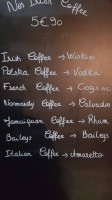 Nos Irish Coffee
5€90
Irish Coffee → Whiskey
Polska Coffee → Vodka
French Coffee → Cognac
Normandy Coffee → Calvados
Jamaïquan Coffee → Rhum
Baileys Coffee → Baileys
Italian Coffee → Amaretto